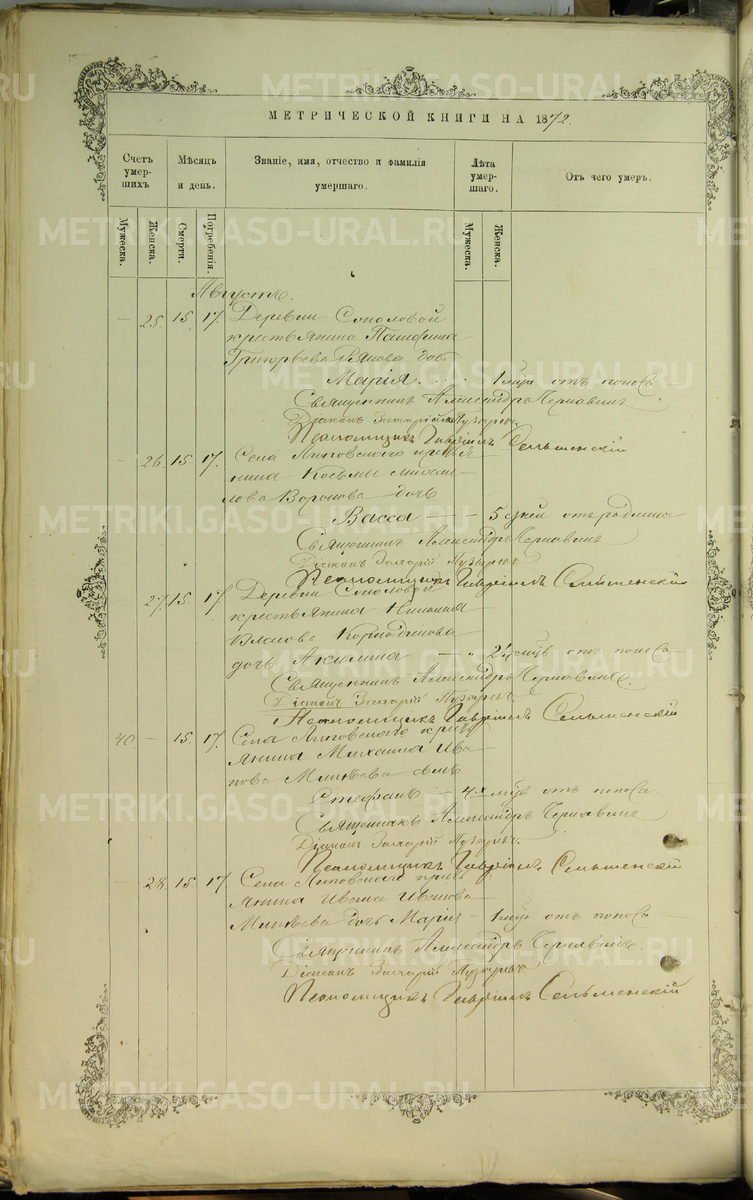 МЕТРИЧЕСКОЙ КНИГИ НА 1872.
Счетъ умершихъ
Мѣсяцъ и день.
Званіе, имя, отчество и фамилія умершаго.
Лѣта умершаго.
Отъ чего умеръ.
Мужеска.
Женска.
Смерти.
Погребенія.
Мужеска.
Женска.
Августъ.
— 25. 15. 17. Деревни Соколовой
крестьянина Памфила
Григорьева дочь
Марія 1 мѣс. отъ поноса
Священникъ Александръ Чернавинъ
Діаконъ Захарій Пузыревъ.
Псаломщикъ Гавріилъ Сельменскій
— 26. 15. 17. Села Липовскаго кресть
нина Косьмы Михаи
лова Воронова дочь
Васса — 5 дней отъ родимца
Священникъ Александръ Чернавинъ
Діаконъ Захарій Пузыревъ.
Псаломщикъ Гавріилъ Сельменскій
— 27. 15. 17. Деревни Соколовой
крестьянина
Власова
дочь Акилина — отъ поноса
Священникъ Александръ Чернавинъ.
Діаконъ Захарій Пузыревъ.
Псаломщикъ Гавріилъ Сельменскій
40. — 15. 17. Села Липовскаго кресть
янина Михаила Ива
нова Минѣева сынъ
Стефанъ — 4х мѣс. отъ поноса.
Священникъ Александръ Чернавинъ
Діаконъ Захарій Пузыревъ.
Псаломщикъ Гавріилъ Сельменскій
— 28. 15. 17. Села Липовскаго кресть
янина Ивана Иванова
Минѣева дочь Марія — 1 мѣс. отъ поноса
Священникъ Александръ Чернавинъ
Діаконъ Захарій Пузыревъ
Псаломщикъ Гавріилъ Сельменскій
METRIKI.GASO-URAL.RU